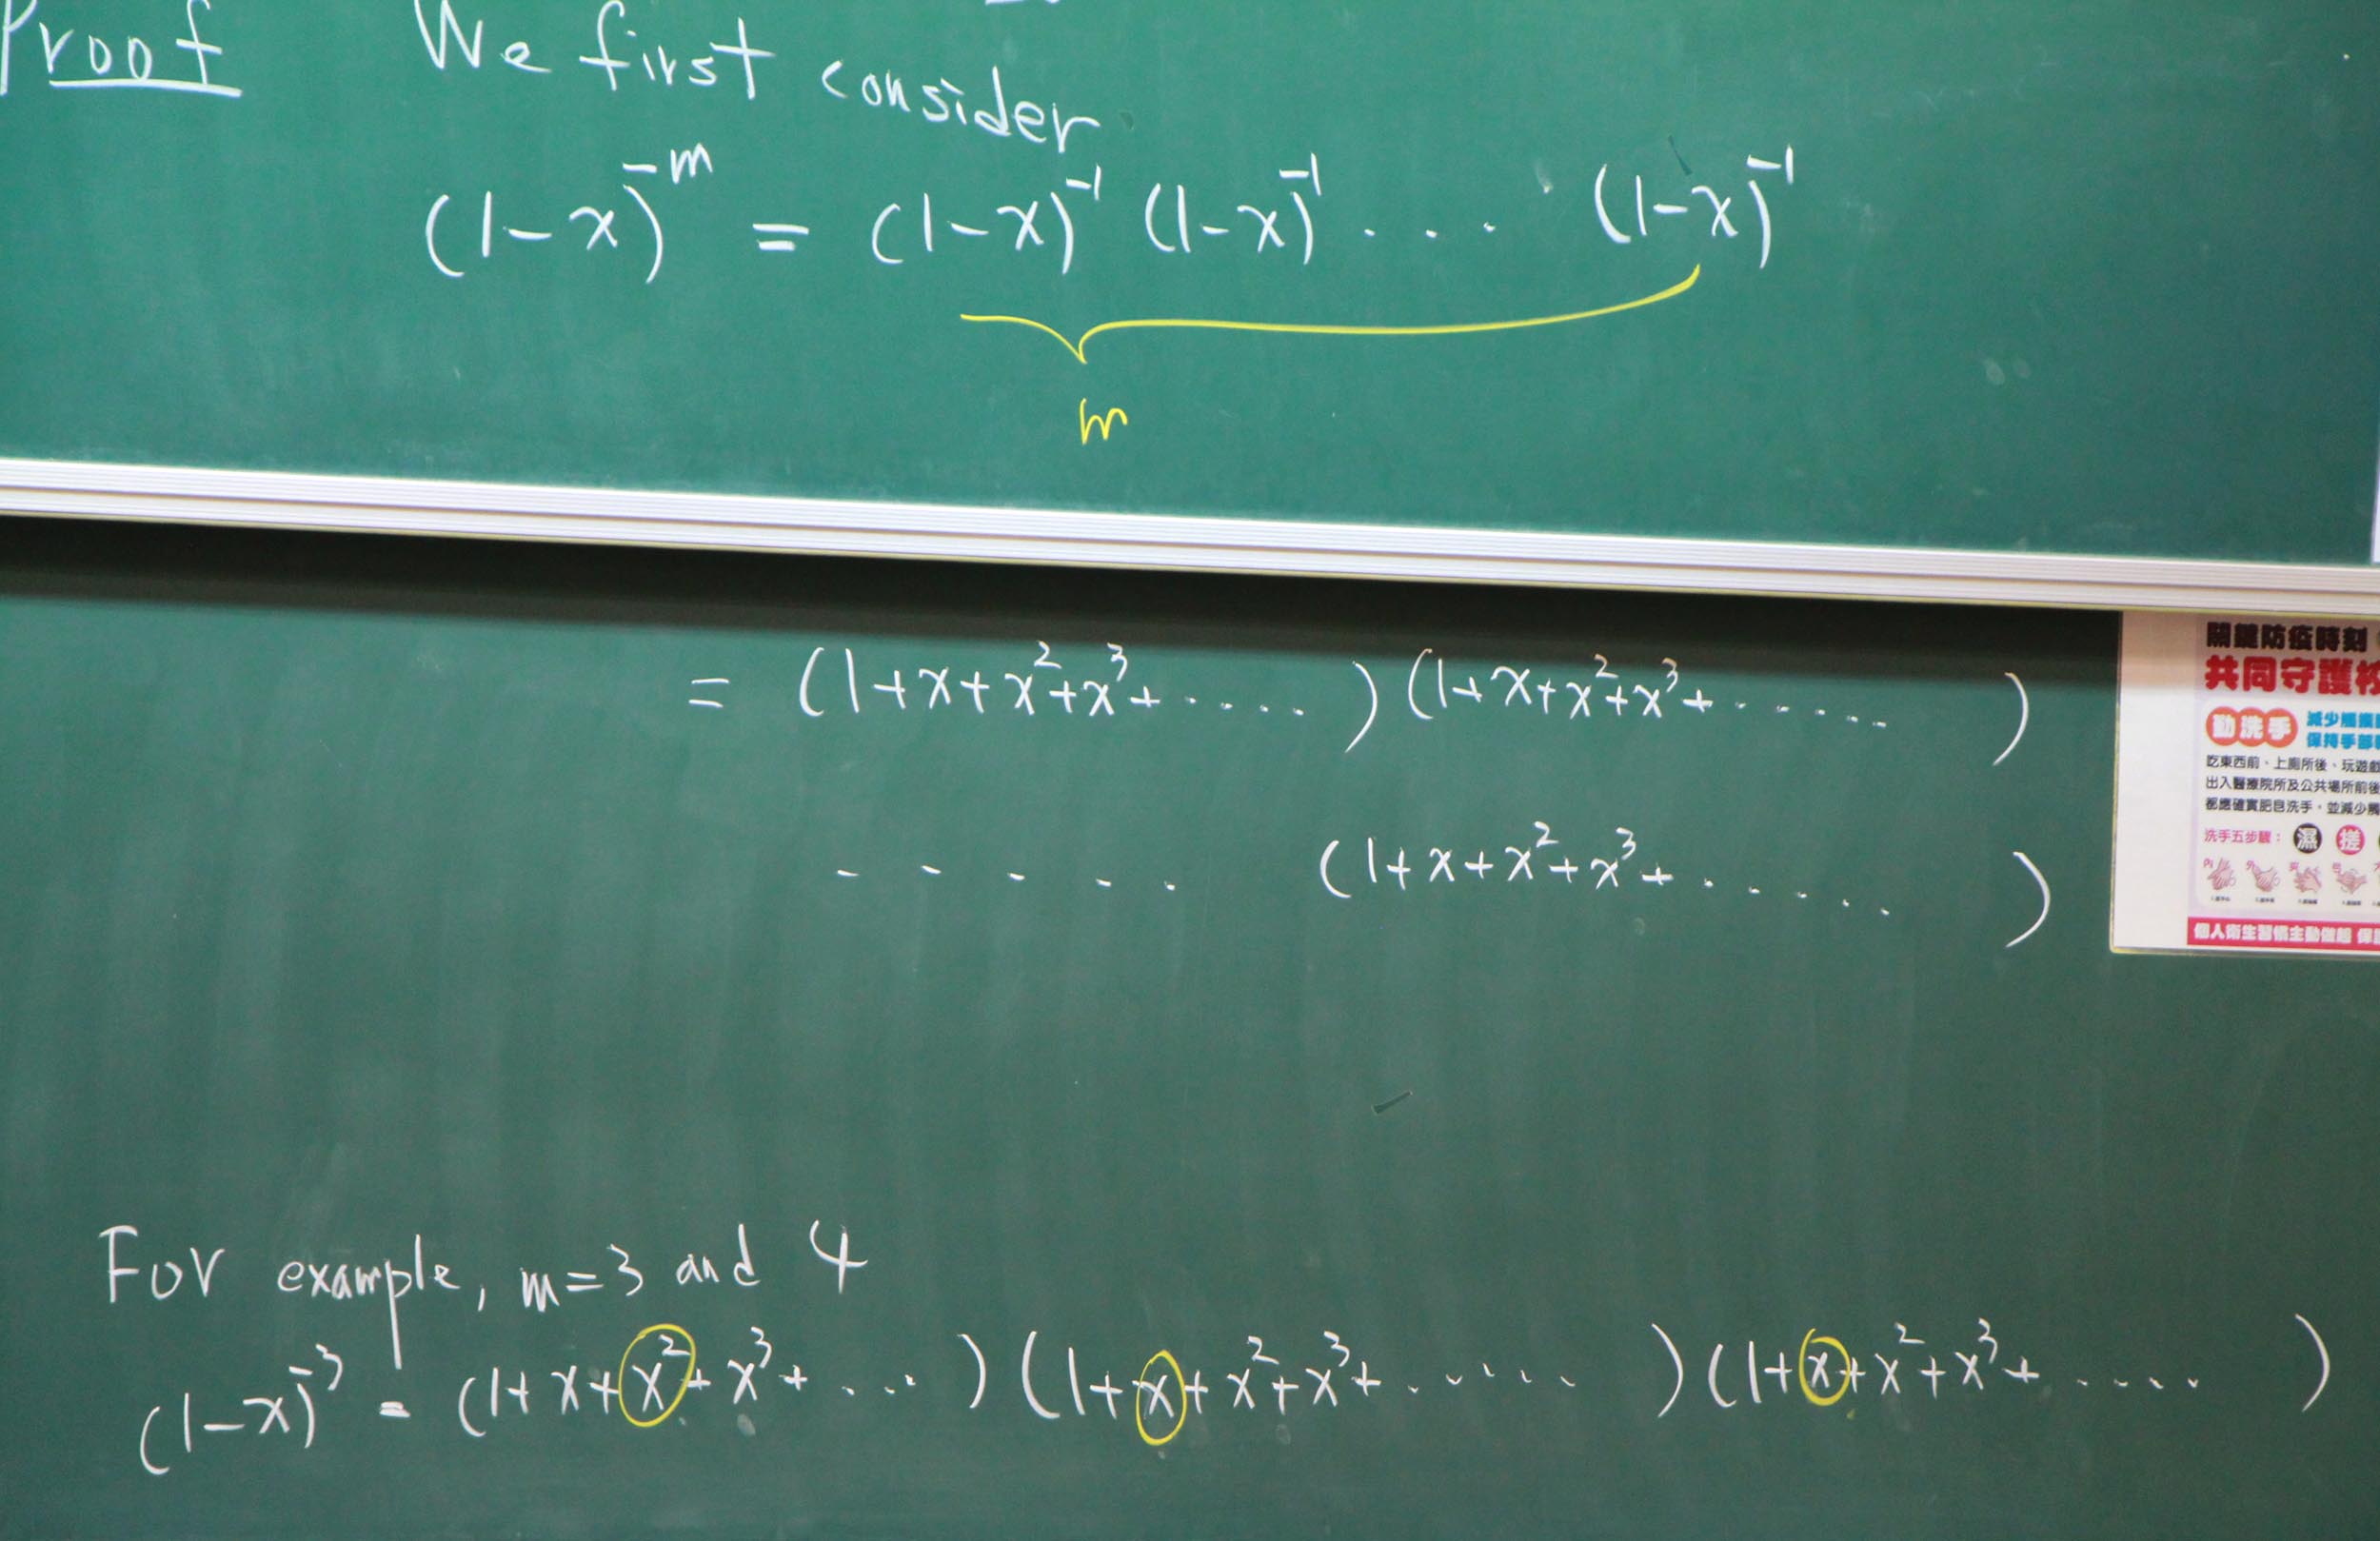 Proof We first consider
(1-x)^{-m} = (1-x)^{-1} (1-x)^{-1} .... (1-x)^{-1}
m
= (1+x+x^2+x^3+.....) (1+x+x^2+x^3+......)
..... (1+x+x^2+x^3+......)
關鍵防疫時刻
共同守護校
勤洗手 減少觸摸
保持手部
吃東西前、上廁所後、玩遊戲
出入醫療院所及公共場所前後
都應確實肥皂洗手，並減少觸
洗手五步驟： 濕 搓
內 外 夾 弓 大
個人衛生習慣主動做起
For example, m=3 and 4
(1-x)^{-3} = (1+x+x^2+x^3+....) (1+x+x^2+x^3+......) (1+x+x^2+x^3+.....)